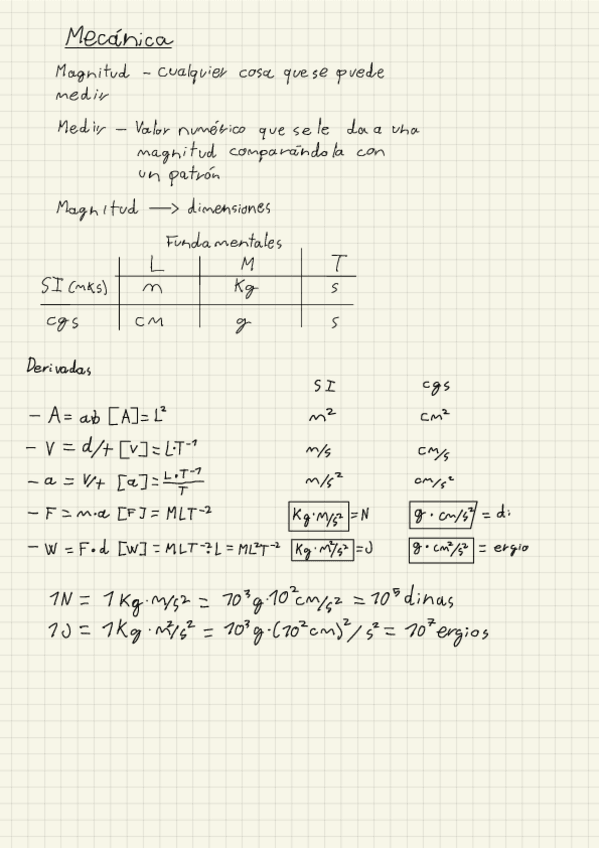 Mecánica
Magnitud - cualquier cosa que se puede
medir
Medir - Valor numérico que se le da a una
magnitud comparándola con
un patrón
Magnitud —> dimensiones
Fundamentales
L M T
SI (mks) m Kg s
cgs cm g s
Derivadas
SI cgs
- A = ab [A] = L² m² cm²
- V = d/t [v] = L·T⁻¹ m/s cm/s
- a = V/t [a] = L·T⁻¹/T m/s² cm/s²
- F = m·a [F] = MLT⁻² Kg·m/s² = N g·cm/s² = di
- W = F·d [W] = MLT⁻²·L = ML²T⁻² Kg·m²/s² = J g·cm²/s² = ergio
1N = 1Kg·m/s² = 10³g·10²cm/s² = 10⁵ dinas
1J = 1Kg·m²/s² = 10³g·(10²cm)²/s² = 10⁷ ergios